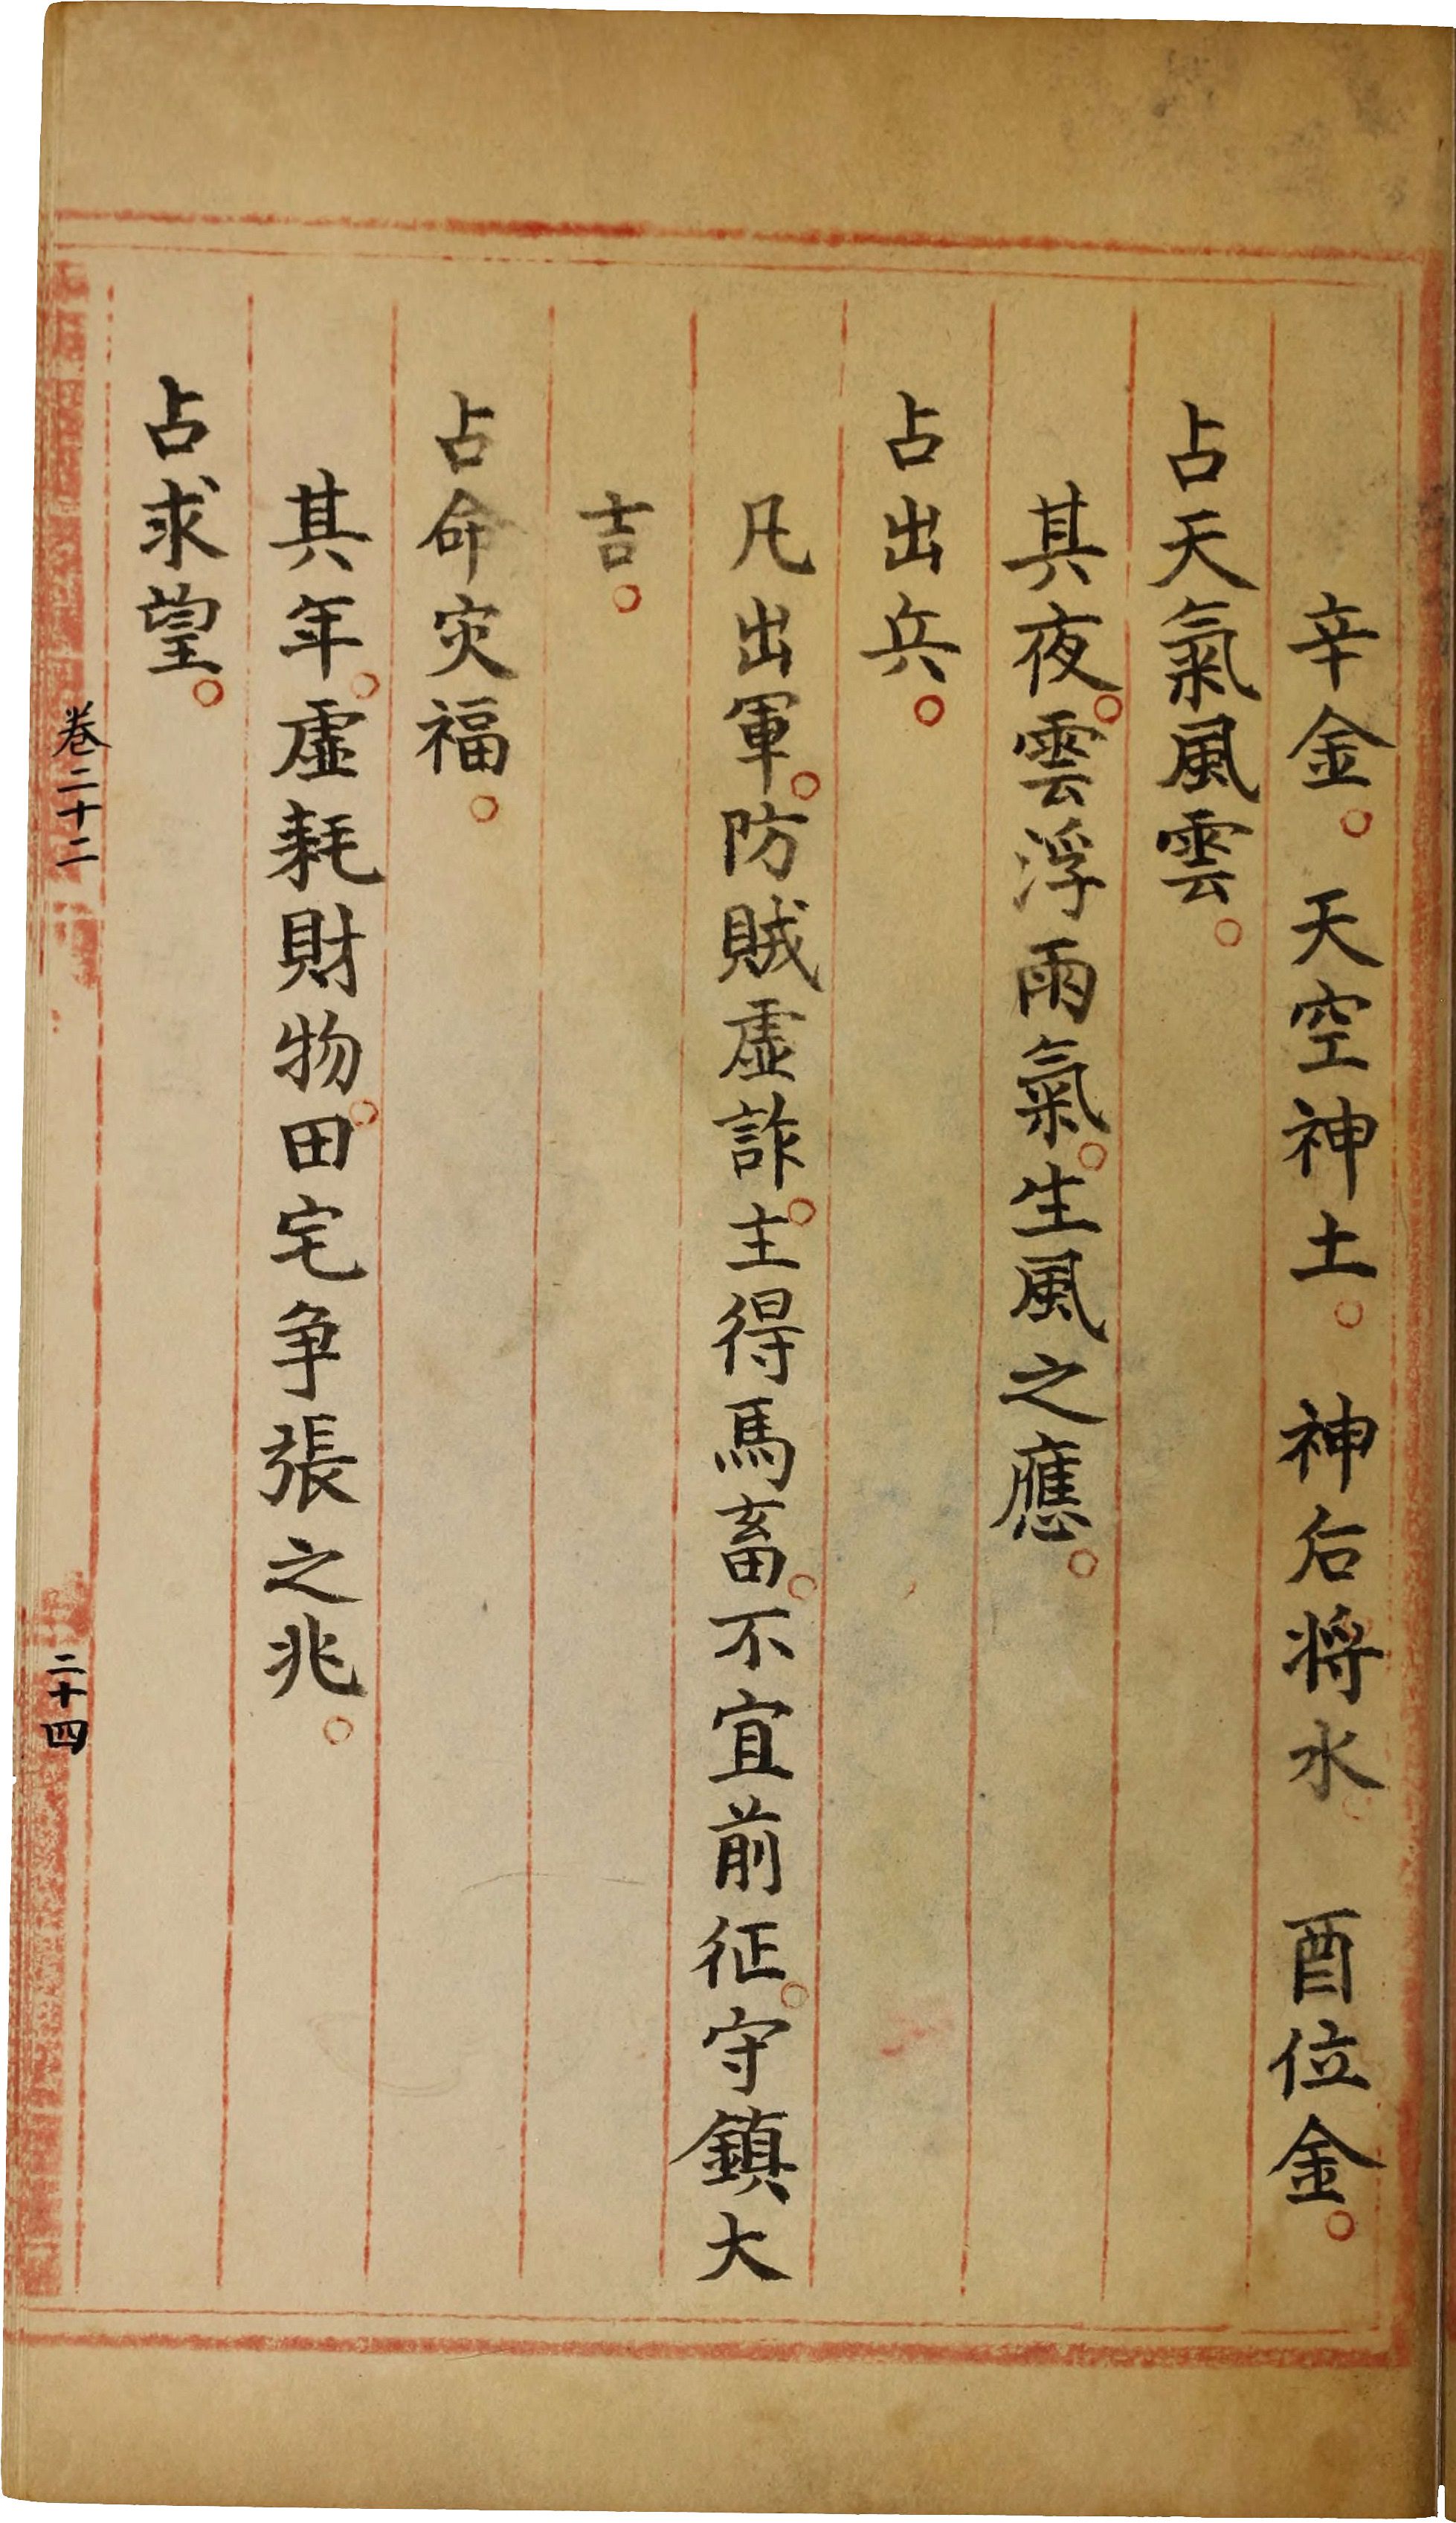 辛金。天空神土。神后將水。酉位金。
占天氣風雲。
其夜。雲浮雨氣。生風之應。
占出兵。
凡出軍。防賊虛詐。主得馬畜。不宜前征。守鎮大
吉。
占命灾福。
其年。虛耗財物。田宅争張之兆。
占求望。
卷二十二
二十四